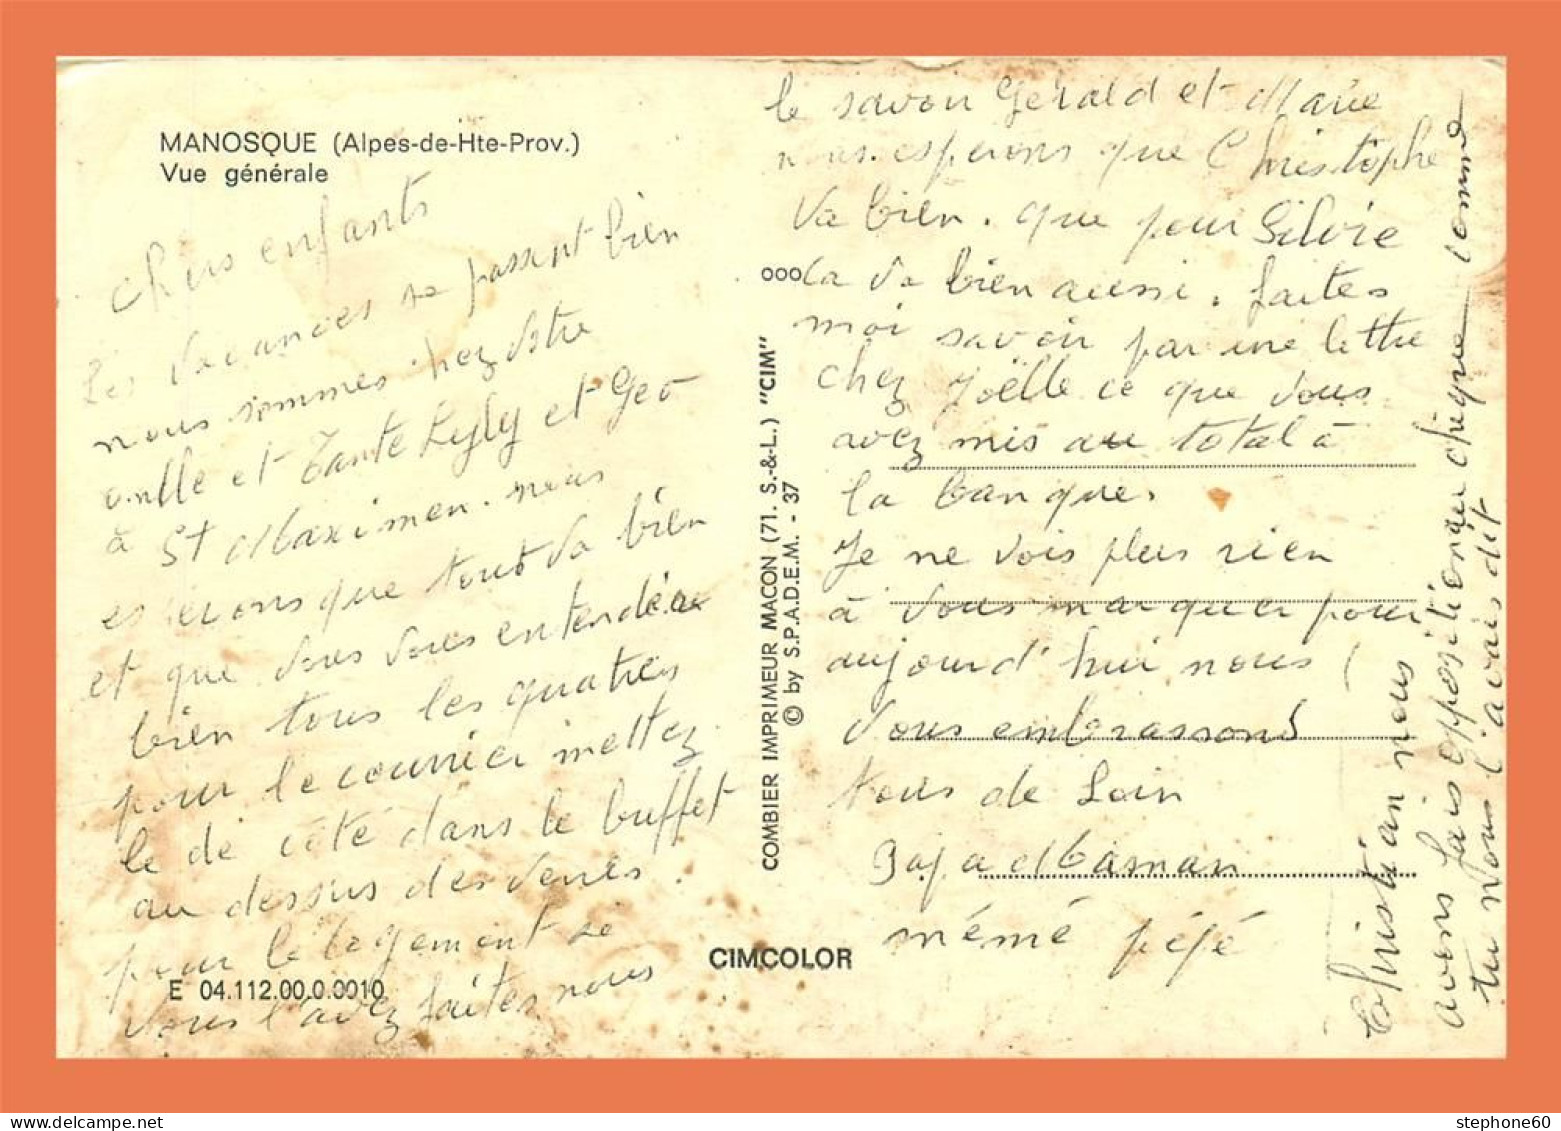 MANOSQUE (Alpes-de-Hte-Prov.)
Vue générale
Chers enfants
Les vacances se passent bien
nous sommes chez votre
onlle et Tante Lyly et Geo
à St Maximen. nous
esperons que tout va bien
et que vous vous entendée
bien tous les quatres
pour le courrier mettez
le de côté dans le buffet
au dessus des verres.
pour le logement si
vous l'avez faites nous
E 04.112.00.0.0010
le savoir Gérald et Marie
nous esperons que Christophe
va bien. que pour Silvie
ça va bien aussi. faites
moi savoir par une lettre
chez Joëlle ce que vous
avez mis au total à
la banque.
Je ne vois plus rien
à vous marquer pour
aujourd'hui nous
vous embrassons
tous de Loin
Papa Maman
mémé pépé
Christian nous
avons fais opposition au chèque comme
tu nous l'avais dit
COMBIER IMPRIMEUR MACON (71. S.-&-L.) "CIM"
© by S.P.A.D.E.M. - 37
000
CIMCOLOR
stephone60